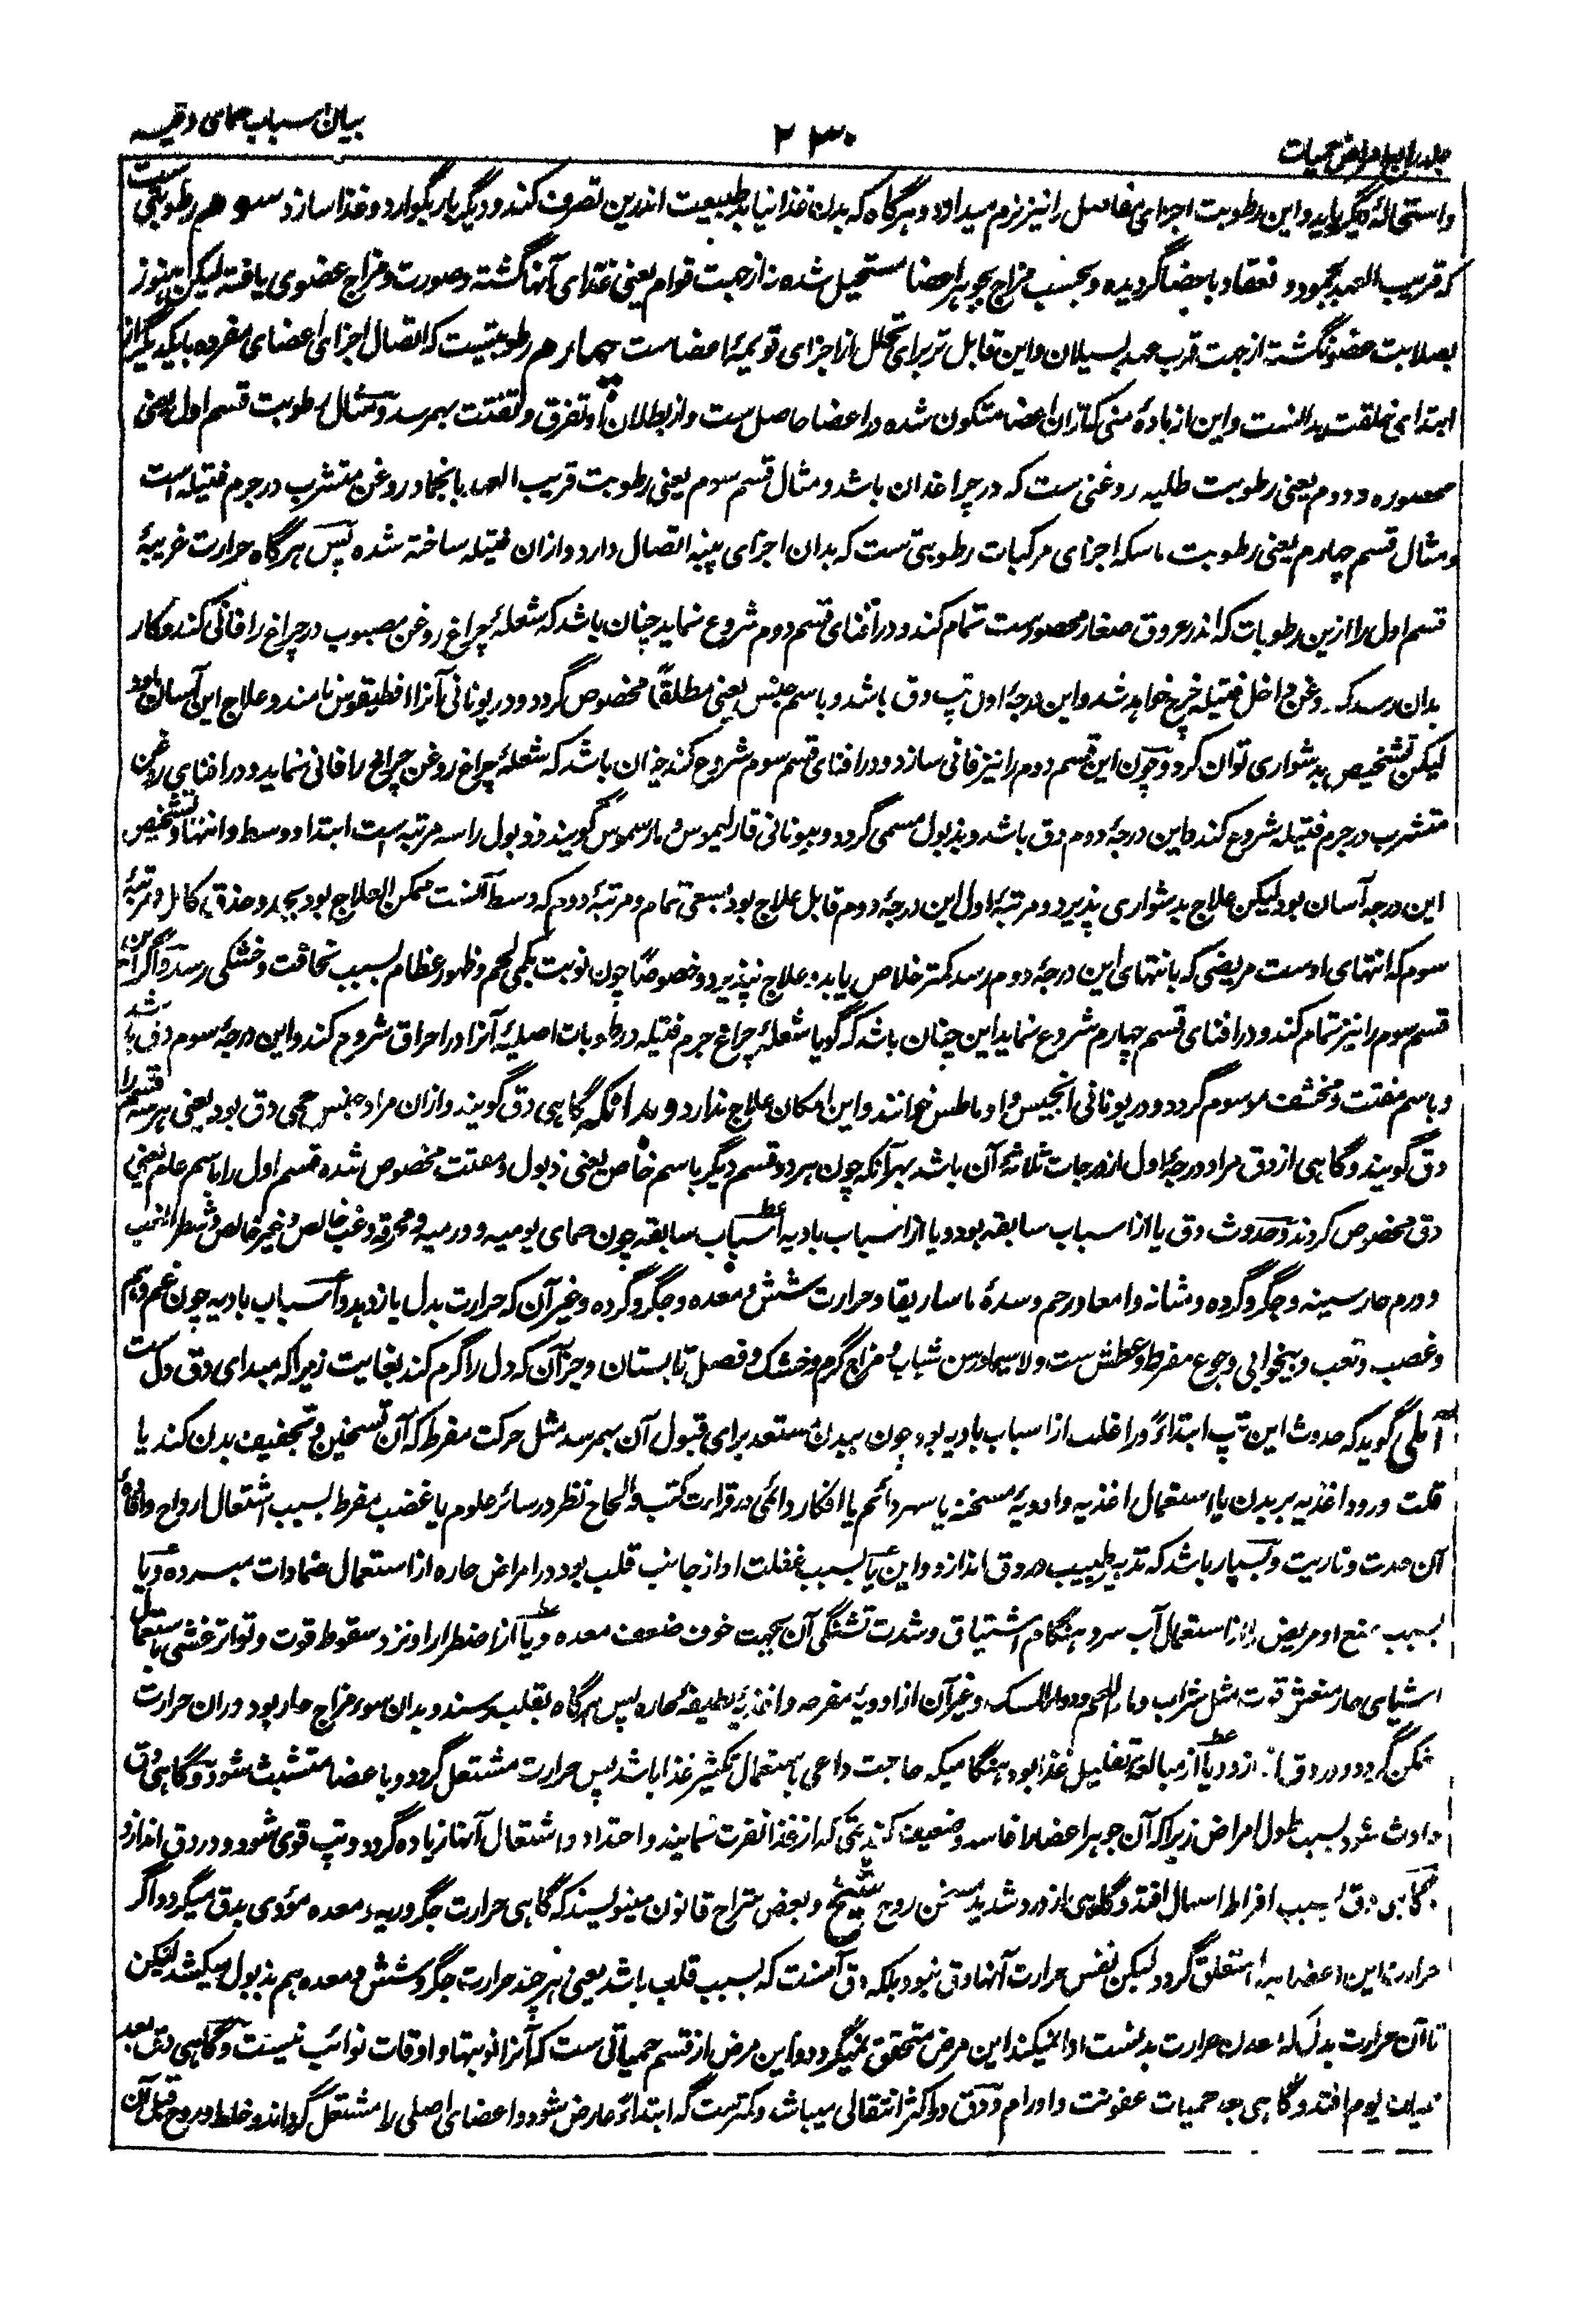 بیان اسباب حمای دقیه
۲۳۰
جلد رابع امراض حمیات
و استحالهٔ دیگر یابد و این رطوبت اجزای مفاصل را نیز نرم میدارد و هرگاه که بدن غذا نیابد طبیعت اندرین تصرف کند و دیگر بار بگوارد و غذا سازد سوم رطوبتی ست
که قریب العهد بجمود و انعقاد باعضا گردیده و بحسب مزاج بجوهر اعضا مستحیل شده نه از جهت قوام یعنی غذای آنها گشته و صورت و مزاج عضوی یافته لیکن هنوز
بصلابت عضو نگشته از جهت قرب عهد بسیلان و این قابل تر برای تحلل از اجزای قویمهٔ اعضاست چهارم رطوبتیست که اتصال اجزای اعضای مفرده بایکدیگر از
ابتدای خلقت بدانست و این از مادهٔ منی که ازان اعضا متکون شده در اعضا حاصل ست و از بطلان او تفرق و تفتت بهم رسد و مثال رطوبت قسم اول یعنی
محصوره و دوم یعنی رطوبت طلیه روغنی ست که در چراغدان باشد و مثال قسم سوم یعنی رطوبت قریب العهد بانجماد روغن متشرب در جرم فتیله است
و مثال قسم چهارم یعنی رطوبت ماسکه اجزای مرکبات رطوبتی ست که بدان اجزای پنبه اتصال دارد و ازان فتیله ساخته شده پس هرگاه حرارت غریبهٔ
قسم اول را ازین رطوبات که اندر عروق صغار محصورست تمام کند و در افنای قسم دوم شروع نماید چنان باشد که شعلهٔ چراغ روغن مصبوب در چراغ را فانی کند و کار
بدان رسد که روغن داخل فتیله خرچ خواهد شد و این درجهٔ اول تپ دق باشد و باسم جنس یعنی مطلقاً مخصوص گردد و در یونانی آنرا افطیقوس نامند و علاج این آسان بود
لیکن تشخیص بدشواری توان کرد و چون این قسم دوم را نیز فانی سازد و در افنای قسم سوم شروع کند چنان باشد که شعلهٔ چراغ روغن چراغ را فانی نماید و در افنای روغن
متشرب در جرم فتیله شروع کند و این درجهٔ دوم دق باشد و بذبول مسمی گردد و بیونانی قارلیموس و مارسموس گویند و ذبول را سه مرتبه است ابتدا و وسط و انتها و تشخیص
این درجه آسان بود لیکن علاج بدشواری پذیرد و مرتبهٔ اول این درجهٔ دوم قابل علاج بود بسعی تمام و مرتبهٔ دوم که وسط آنست ممکن العلاج بود بجد و حذق کامل و مرتبهٔ
سوم که انتهای اوست مریضی که بانتهای این درجهٔ دوم رسد کمتر خلاص یابد و علاج نپذیرد و خصوصاً چون نوبت بکمی لحم و ظهور عظام بسبب نحافت و خشکی رسد و اگر این
قسم سوم را نیز تمام کند و در افنای قسم چهارم شروع نماید این چنان باشد که گویا شعلهٔ چراغ جرم فتیله در طوبات اصلیهٔ آنرا در احراق شروع کند و این درجهٔ سوم دق باشد
و باسم مفتت و مخشف موسوم گردد و در یونانی انجیس و او ماطس خوانند و این امکان علاج ندارد و بدانکه گاهی دق گویند و ازان مراد جنس حمی دق بود یعنی هر سه قسم را
دق گویند و گاهی از دق مراد درجهٔ اول از درجات ثلاثهٔ آن باشد بهر آنکه چون هر دو قسم دیگر باسم خاص یعنی ذبول و مفتت مخصوص شده قسم اول را باسم عام یعنی
دق مخصوص کردند و حدوث دق یا از اسباب سابقه بود و یا از اسباب بادیه اسباب سابقه چون حمای یومیه و ورمیه و محرقه و غب خالص و غیر خالص و شطر الغب
و ورم حار سینه و جگر و گرده و مثانه و امعا و رحم و سدهٔ ماساریقا و حرارت شش و معده و جگر و گرده و غیر آن که حرارت بدل باز دهد و اسباب بادیه چون غم و هم
و غضب و تعب و بیخوابی و جوع مفرط و عطش ست ولاسیما در سن شباب و مزاج گرم و خشک و فصل تابستان و جز آن که دل را گرم کند بغایت زیراکه مبدای دق دل ست
آملی گوید که حدوث این تپ ابتداءً در اغلب از اسباب بادیه بود چون ببدن مستعد برای قبول آن بهم رسد مثل حرکت مفرط که آن تسخین و تجفیف بدن کند یا
قلت ورود اغذیه بر بدن یا استعمال اغذیه و ادویهٔ مسخنه یا سهر دائم یا افکار دائمی در قراءت کتب و الحاح نظر در سائر علوم یا غضب مفرط بسبب اشتعال ارواح و افادهٔ
آن حدت و ناریت و بسیار باشد که تدبیر طبیب در دق اندازد و این یا بسبب غفلت او از جانب قلب بود در امراض حاره از استعمال ضمادات مبرده و یا
بسبب منع او مریض را از استعمال آب سرد هنگام اشتیاق و شدت تشنگی آن بجهت خوف ضعف معده و یا از اضطرار او نزد سقوط قوت و تواتر غشی باستعمال
اشیای حار منعش قوت مثل شراب و ماء اللحم و دواء المسک و غیر آن از ادویهٔ مفرحه و اغذیهٔ لطیفهٔ حاره پس هرگاه بقلب رسند و بدان سوء مزاج حار بود دران حرارت
متمکن گردد و در دق اندازد و یا از مبالغهٔ تقلیل غذا بود هنگامیکه حاجت داعی باستعمال تکثیر غذا باشد پس حرارت مشتعل گردد و باعضا متشبث شود و گاهی دق
حادث شود بسبب طول امراض زیراکه آن جوهر اعضا را فاسد و ضعیف کند حتی که از غذا نفرت نمایند و احتداد و اشتعال آنها زیاده گردد و تپ قوی شود و در دق اندازد
گاهی دق بسبب افراط اسهال افتد و گاهی از درد شدید مسخن روح شیخ و بعض شراح قانون مینویسند که گاهی حرارت جگر و ریه و معده مؤدی بدق میگردد اگر
حرارت این اعضا بدل متعلق گردد لیکن نفس حرارت آنها دق نبود بلکه دق آنست که بسبب قلب باشد یعنی هر چند حرارت جگر و شش و معده هم بذبول میکشد لیکن
تا آن حرارت بدل که معدن حرارت بدنست ادا نمیکند این مرض متحقق نمیگردد و این مرض از قسم حمیاتی ست که آنرا نوبتها و اوقات نوائب نیست و گاهی دق بعد
یوم افتد و گاهی بعد حمیات عفونت و اورام و دق در اکثر انتقالی میباشد و کمتر ست که ابتداءً عارض شود و اعضای اصلی را مشتعل گرداند و خلط و روح قبل آن